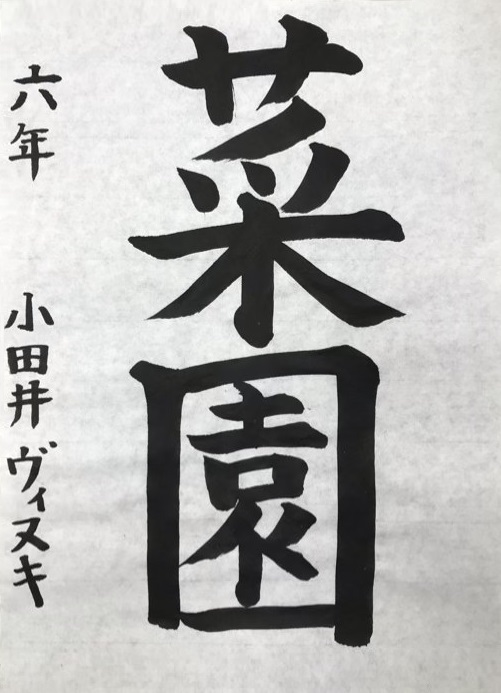 菜園
六年 小田井ヴィヌキ